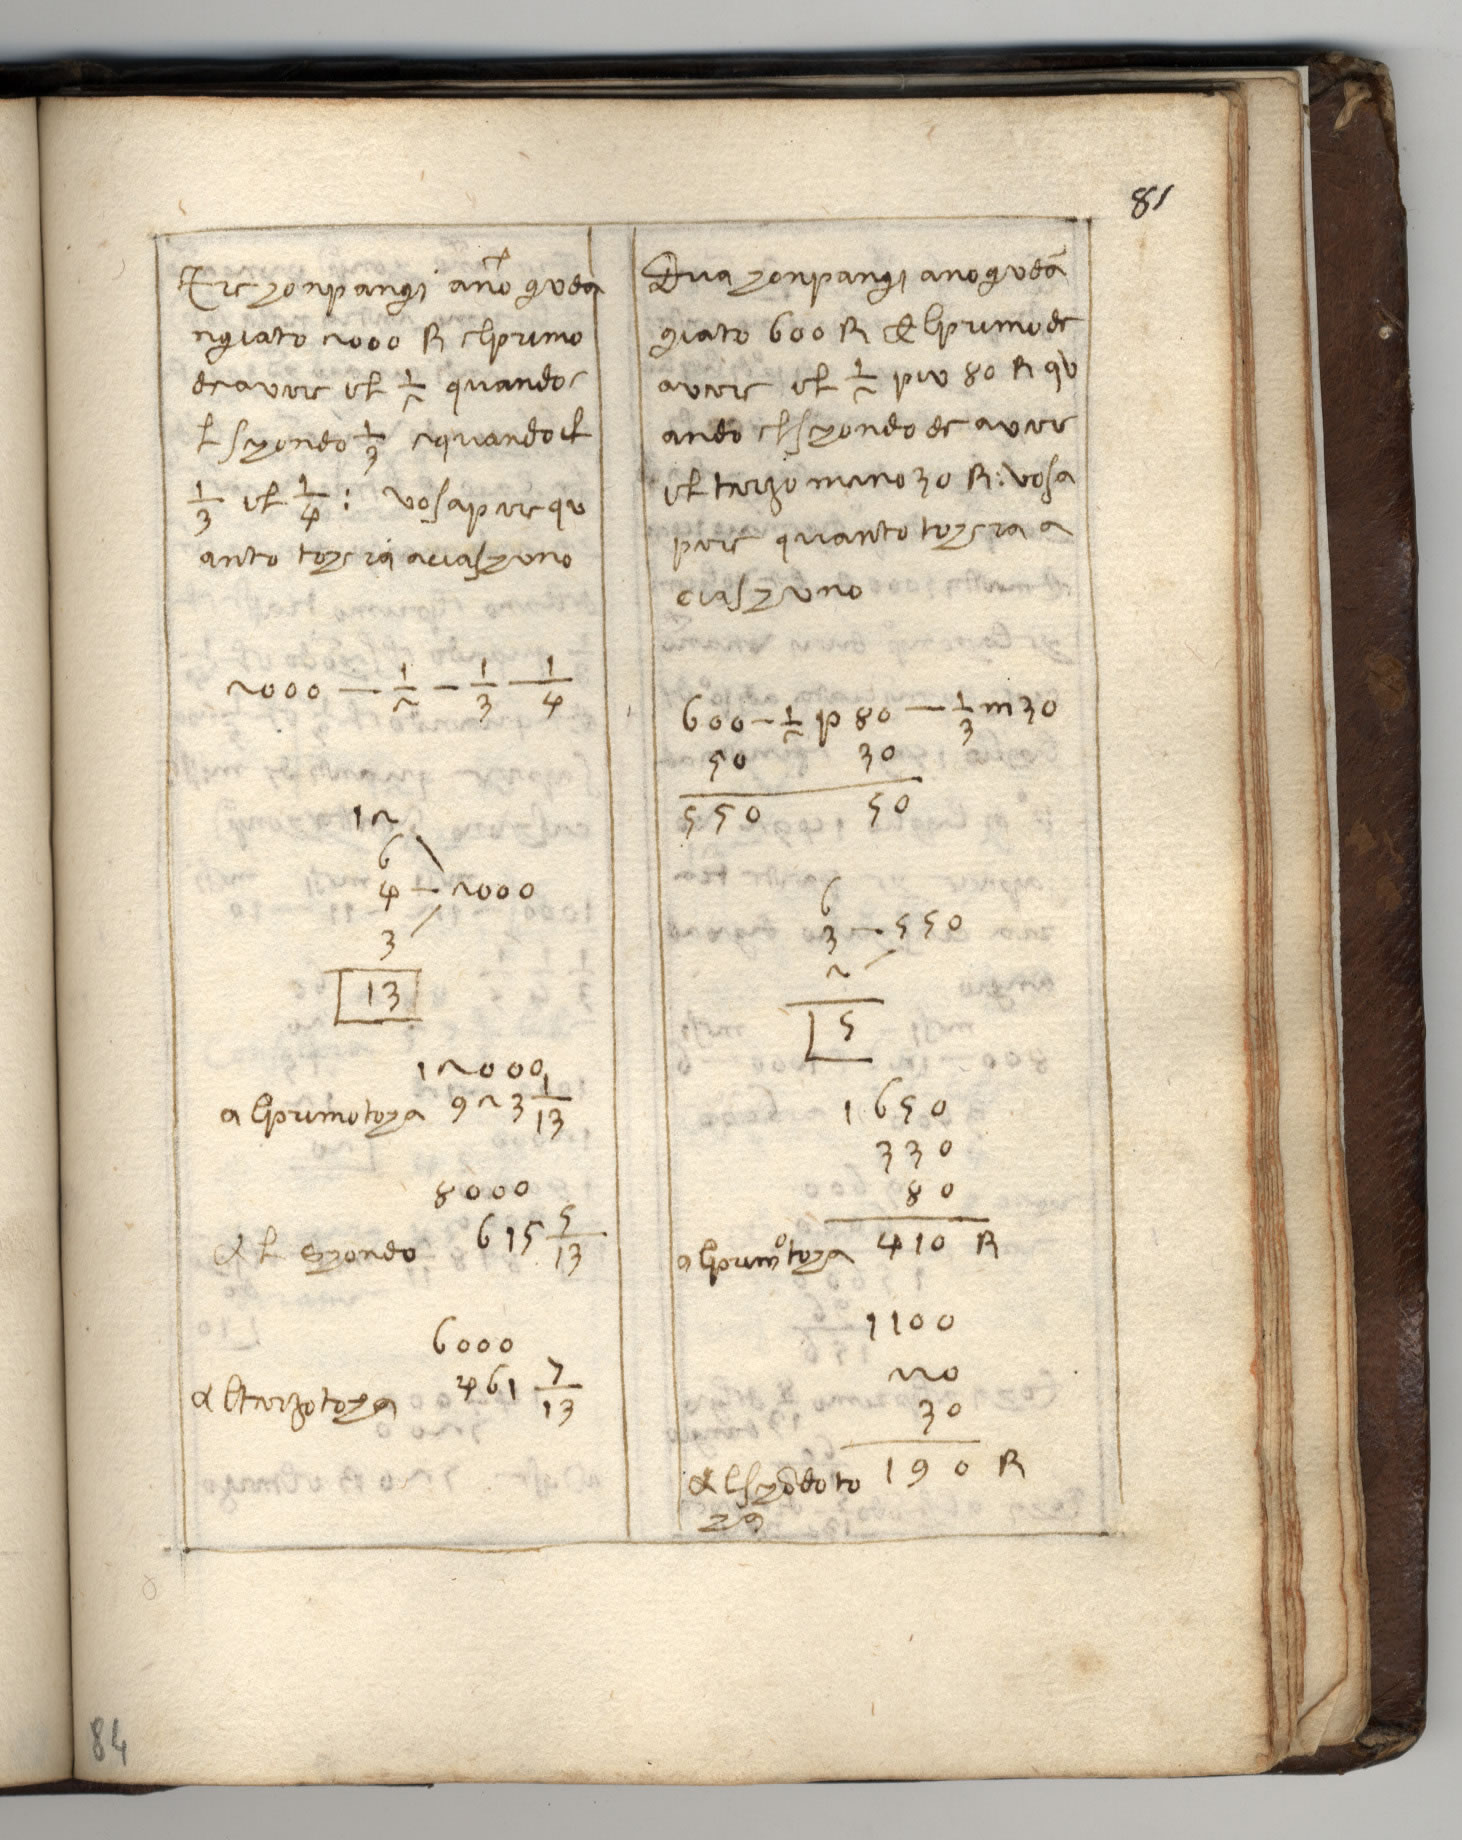 81
Tre zonpangi anno gueda
ngiato 2000 R elprimo
de avere il 1/2 quando e
l sezondo 1/3 e quando il
1/3 il 1/4 : vo sapere qu
anto tozera aciaszuno
2000 — 1/2 — 1/3 — 1/4
12
6
4 — 2000
3
13
12000
alprimo toza 923 1/13
8000
al sezondo 615 5/13
6000
al terzo toza 461 7/13
Dua zonpangi ano guedā
giato 600 R & lprimo de
avere il 1/2 piu 80 R qu
ando elsezondo de avere
il terzo meno 30 R: vo sa
pere quanto tozera a
ciaszuno
600 — 1/2 p 80 — 1/3 m 30
50 30
550 50
6
3 — 550
2
5
1650
330
80
alprimo toza 410 R
1100
220
30
alsezōdo to 190 R
za
84